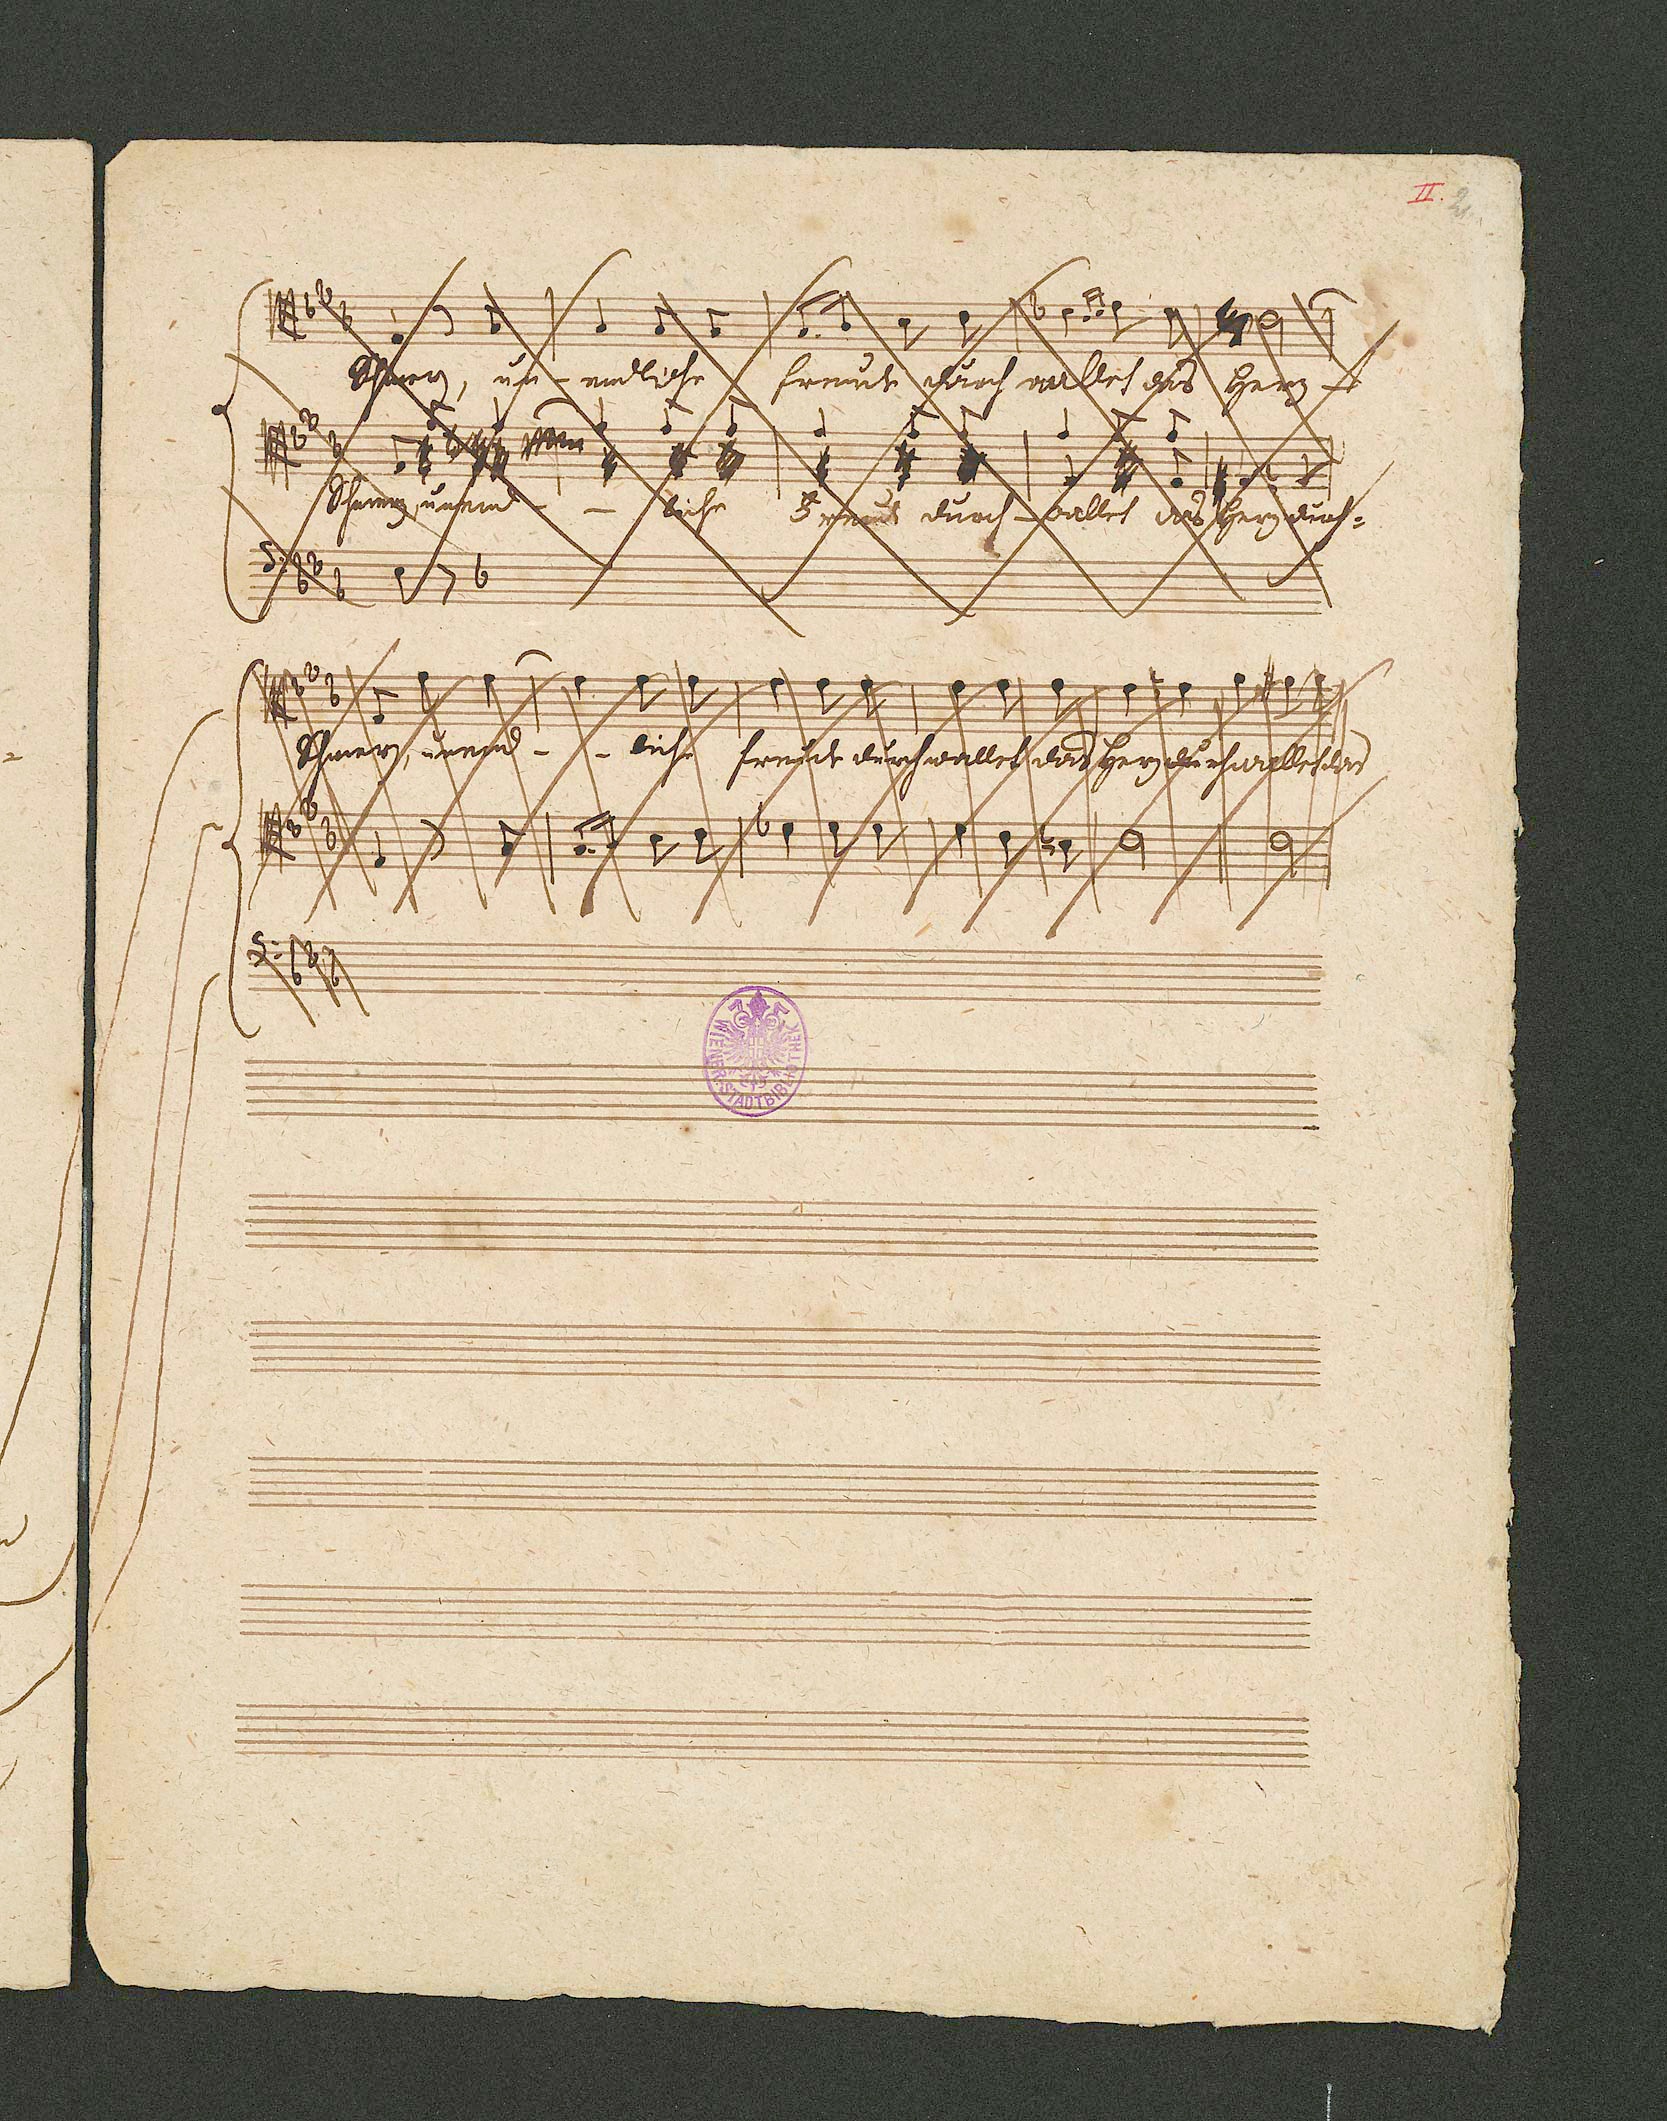 II. 2
Schmerz, un - endliche Freude durch wallet das Herz
Schmerz, unend - - liche Freude durch - wallet das Herz durch=
Schmerz, unend - - liche Freude durchwallet das Herz durchwallet das
WIENER STADTBIBLIOTHEK